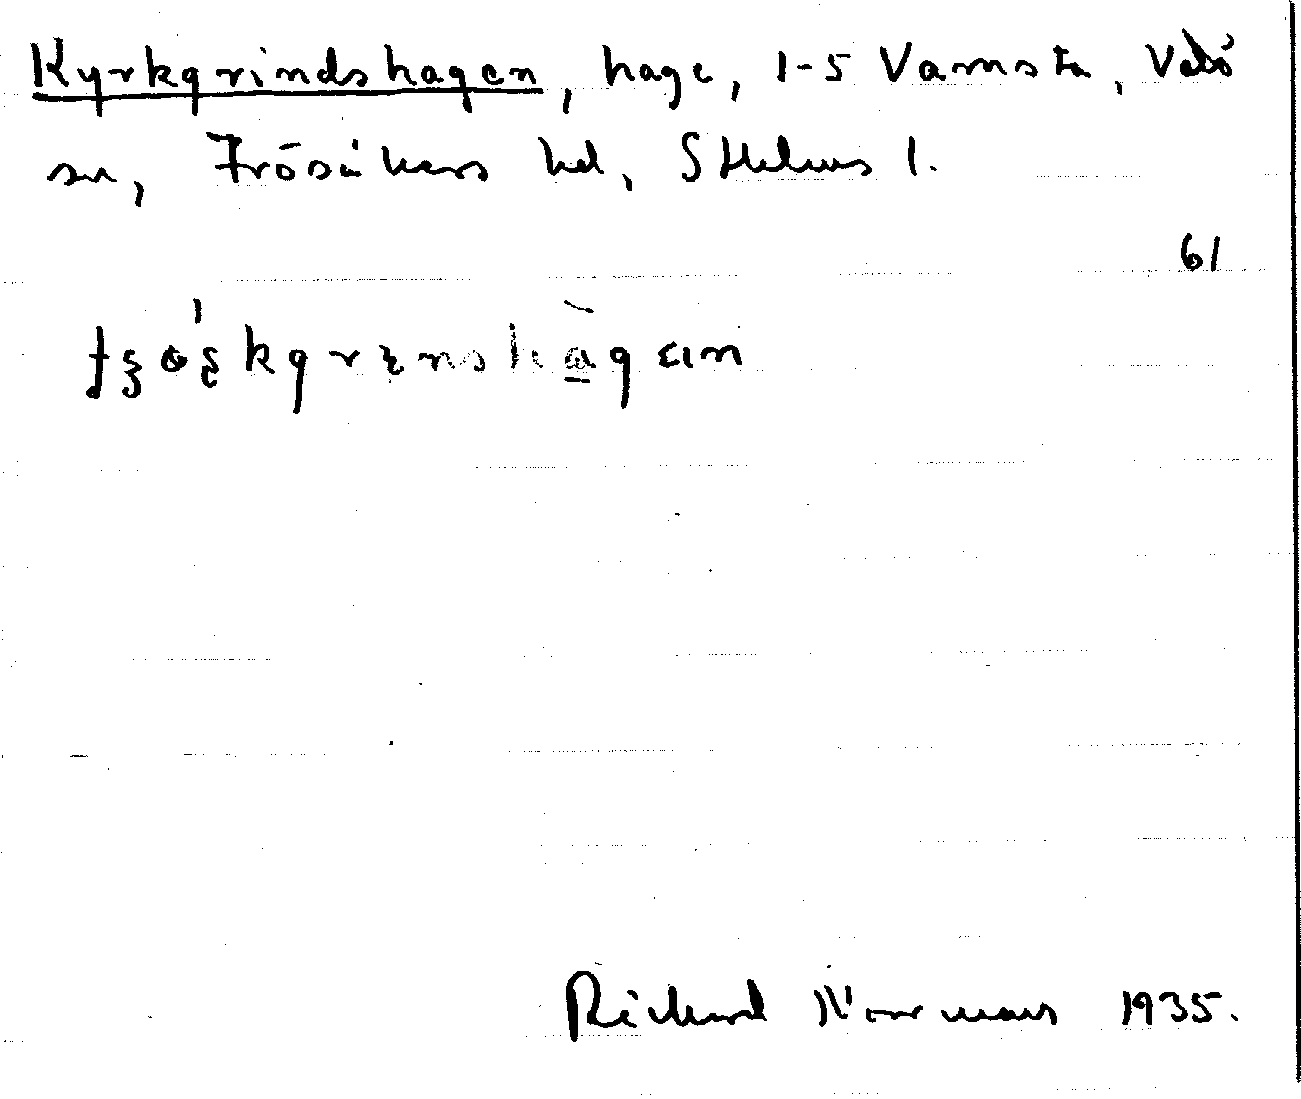 Kyrkgrindshagen, hage, 1-5 Vamsta, Vätö
sn, Frösåkers hd, Sthlms l.
61
Richard Norrman 1935.